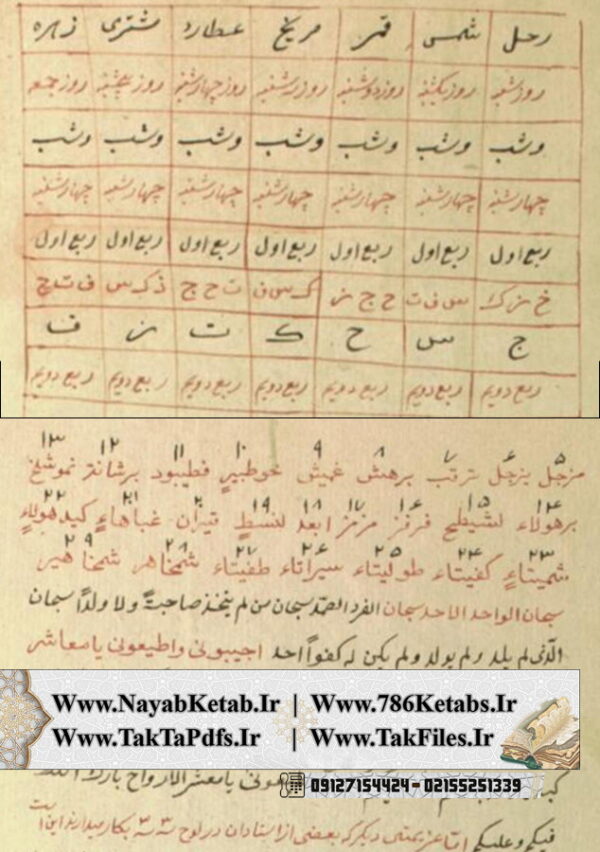 زحل شمس قمر مریخ عطارد مشتری زهره
روز شنبه روز یکشنبه روز دوشنبه روز سه شنبه روز چهارشنبه روز پنجشنبه روز جمعه
و شب و شب و شب و شب و شب و شب و شب
چهارشنبه چهارشنبه چهارشنبه چهارشنبه چهارشنبه چهارشنبه چهارشنبه
ربع اول ربع اول ربع اول ربع اول ربع اول ربع اول ربع اول
ج س ح ک ت ز ف
ربع دویم ربع دویم ربع دویم ربع دویم ربع دویم ربع دویم ربع دویم
۵ ۶ ۷ ۸ ۹ ۱۰ ۱۱ ۱۲ ۱۳
مزجل بزجل ترقب برهش غمیش خوطیر قطیبود برشان نموشلخ
۱۴ ۱۵ ۱۶ ۱۷ ۱۸ ۱۹ ۲۰ ۲۱ ۲۲
برهولاء لشیطلخ قرقز مزمز غباهاء کیدهولاء
۲۳ ۲۴ ۲۵ ۲۶ ۲۷ ۲۸ ۲۹
شمیتاء کفیتاء طولیتاء سیراتاء طفیتاء شمخاهر شمخاهیر
سبحان الواحد الاحد سبحان الفرد الصمد سبحان من لم یتخذ صاحبة ولا ولدا سبحان
الذی لم یلد ولم یولد ولم یکن له کفوا احد اجیبونی واطیعونی یا معاشر
Www.NayabKetab.Ir | Www.786Ketabs.Ir
Www.TakTaPdfs.Ir | Www.TakFiles.Ir
یا معشر الارواح بارک الله
09127154424 - 02155251339
فیکم وعلیکم اما عزیمتی دیگر که بعضی از استادان در لوح ۳ در ۳ بکار میدارند این است